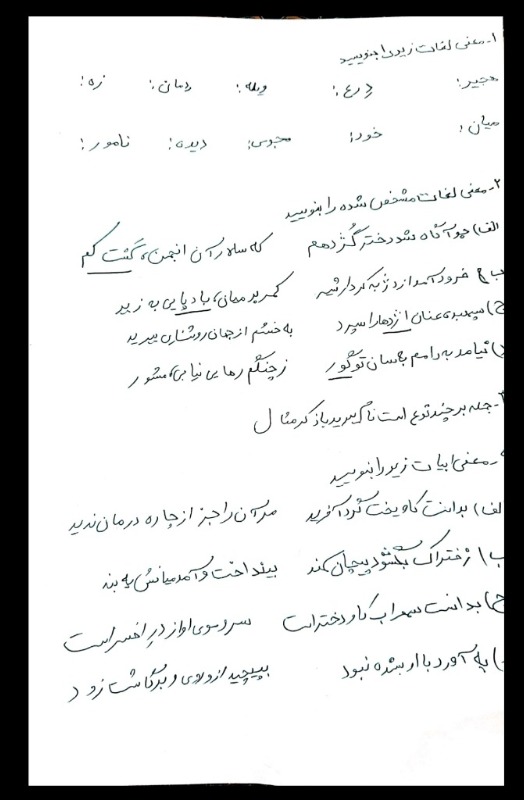 ۱- معنی لغات زیر را بنویسید
هجیر: دِرع: ویله: دمان: زه:
میان: خود: دیده: نامور:
۲- معنی لغات مشخص شده را بنویسید
الف) چو آگاه شد دختر گژدهم که سالار آن انجمن، گشت کم
ب) فرود آمد از دژ به کردار شیر کمر بر میان، بادپایی به زیر
ج) سپهبد، عنان اژدها را سپرد به خشم از جهان روشنایی ببرد
نیامد به دامم به سان تو گور ز چنگم رهایی نیابی، مشور
جمله بر چند نوع است نام ببرید با ذکر مثال
معنی ابیات زیر را بنویسید
الف) بدانست کاویخت گردآفرید مر آن را جز از چاره درمان ندید
ب) ز فتراک بگشود پیچان کمند بینداخت و آمد میانش به بند
ج) بدانست سهراب کاو دختر است سر و موی او از در افسر است
به آورد با او بسنده نبود بپیچید از او روی و برگاشت زود